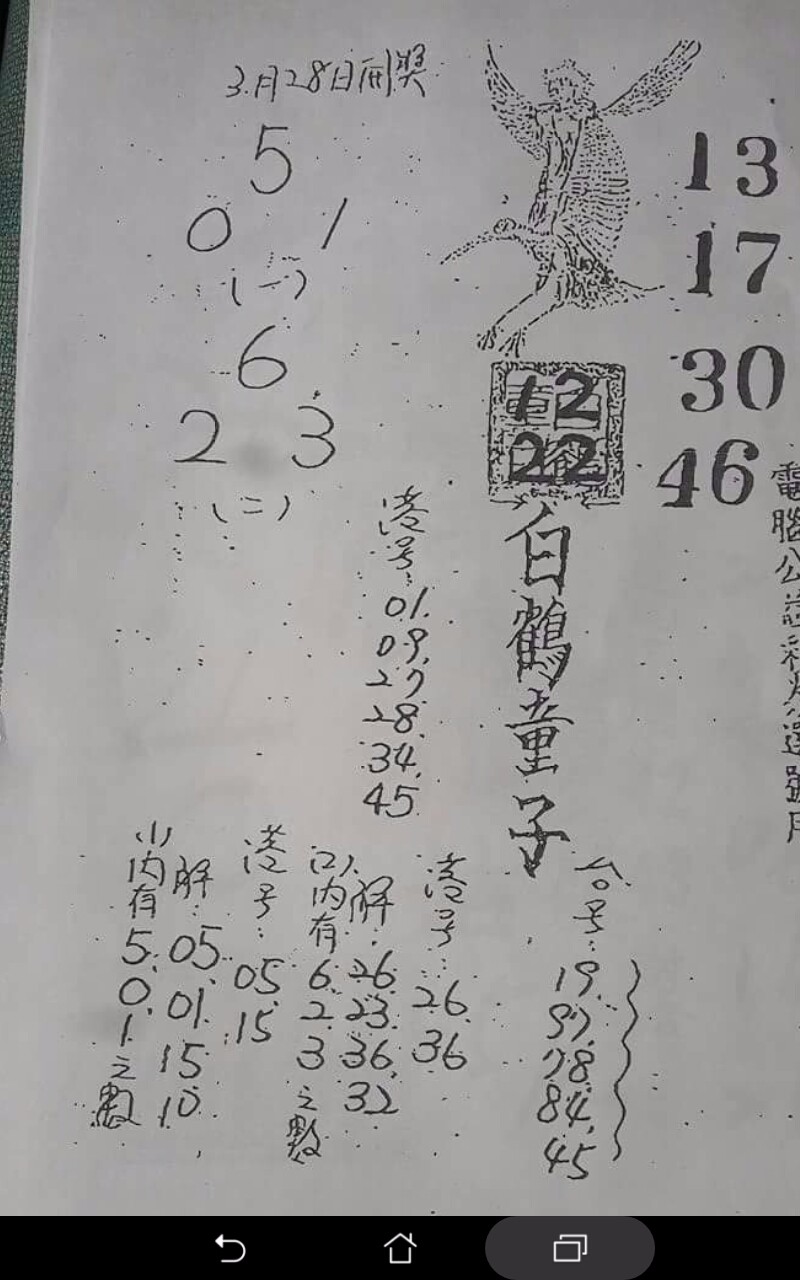 3月28日開獎
5
0 1
(一)
6
2 3
(二)
13
17
30
46
12
22
白鶴童子
港号:
01.
09.
27
28.
34.
45
(1)内有5.0.1之數
解:
05.
01.
15
10
港号:
05
15
(2)内有6.2.3之數
解:
26.
23.
36.
32
港号:
26.
36
台号:
19.
97.
78.
84.
45
電腦公益彩券選號用